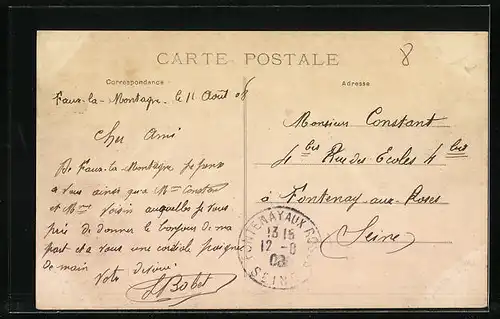 CARTE POSTALE
8
Correspondance
Adresse
Faux-la-Montagne, le 11 Août 08
Cher Ami
De Faux-la-Montagne je pense
a vous ainsi qu'a Mme Constant
et Mme Voisin auquelles je vous
prie de donner le bonjour de ma
part et a vous une cordiale poignée
de main
Votre dévoué
Monsieur Constant
4 bis Rue des Ecoles 4 bis
à Fontenay-aux-Roses
Seine
FONTENAY AUX ROSES
13 15
12 - 8
08
SEINE